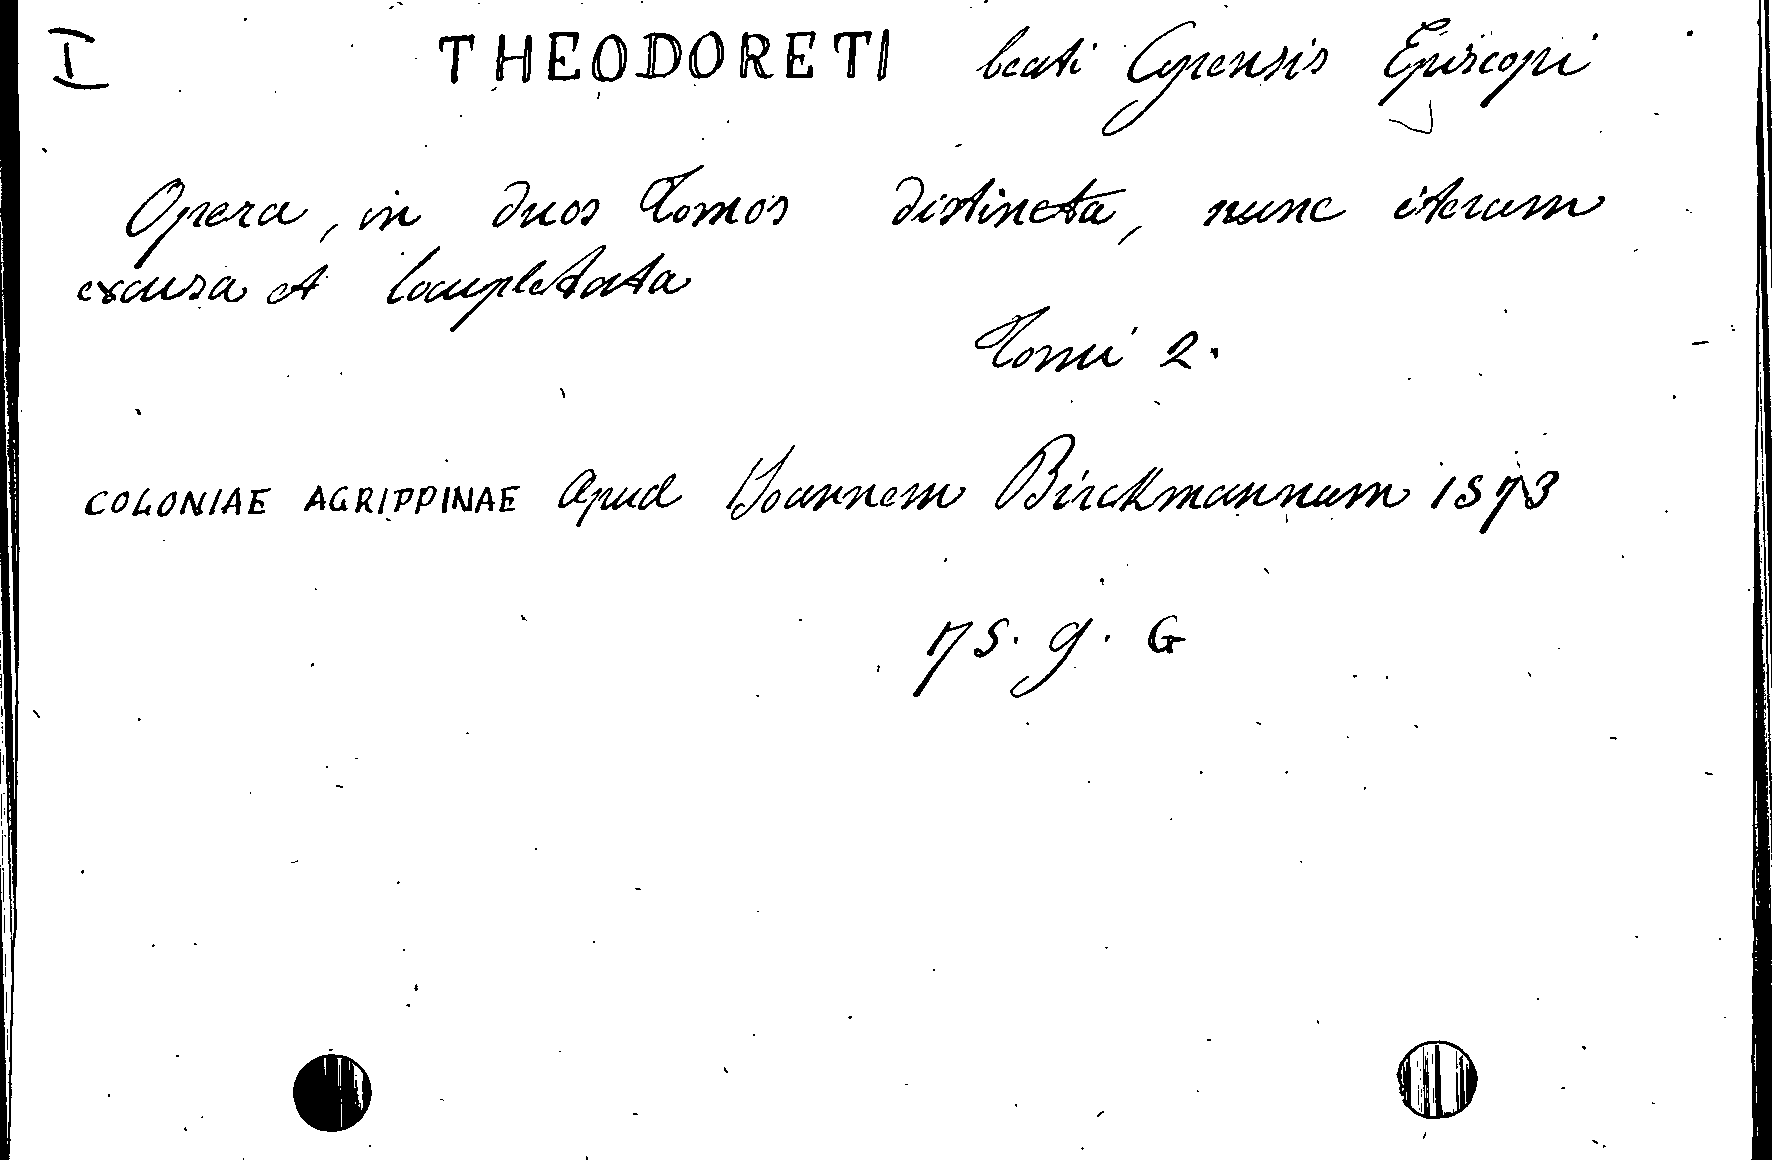 I THEODORETI beati Cyrensis Episcopi
Opera, in duos Tomos distincta, nunc iterum
excusa et locupletata
Tomi 2.
COLONIAE AGRIPPINAE apud Ioannem Birckmannum 1573
75. g. G